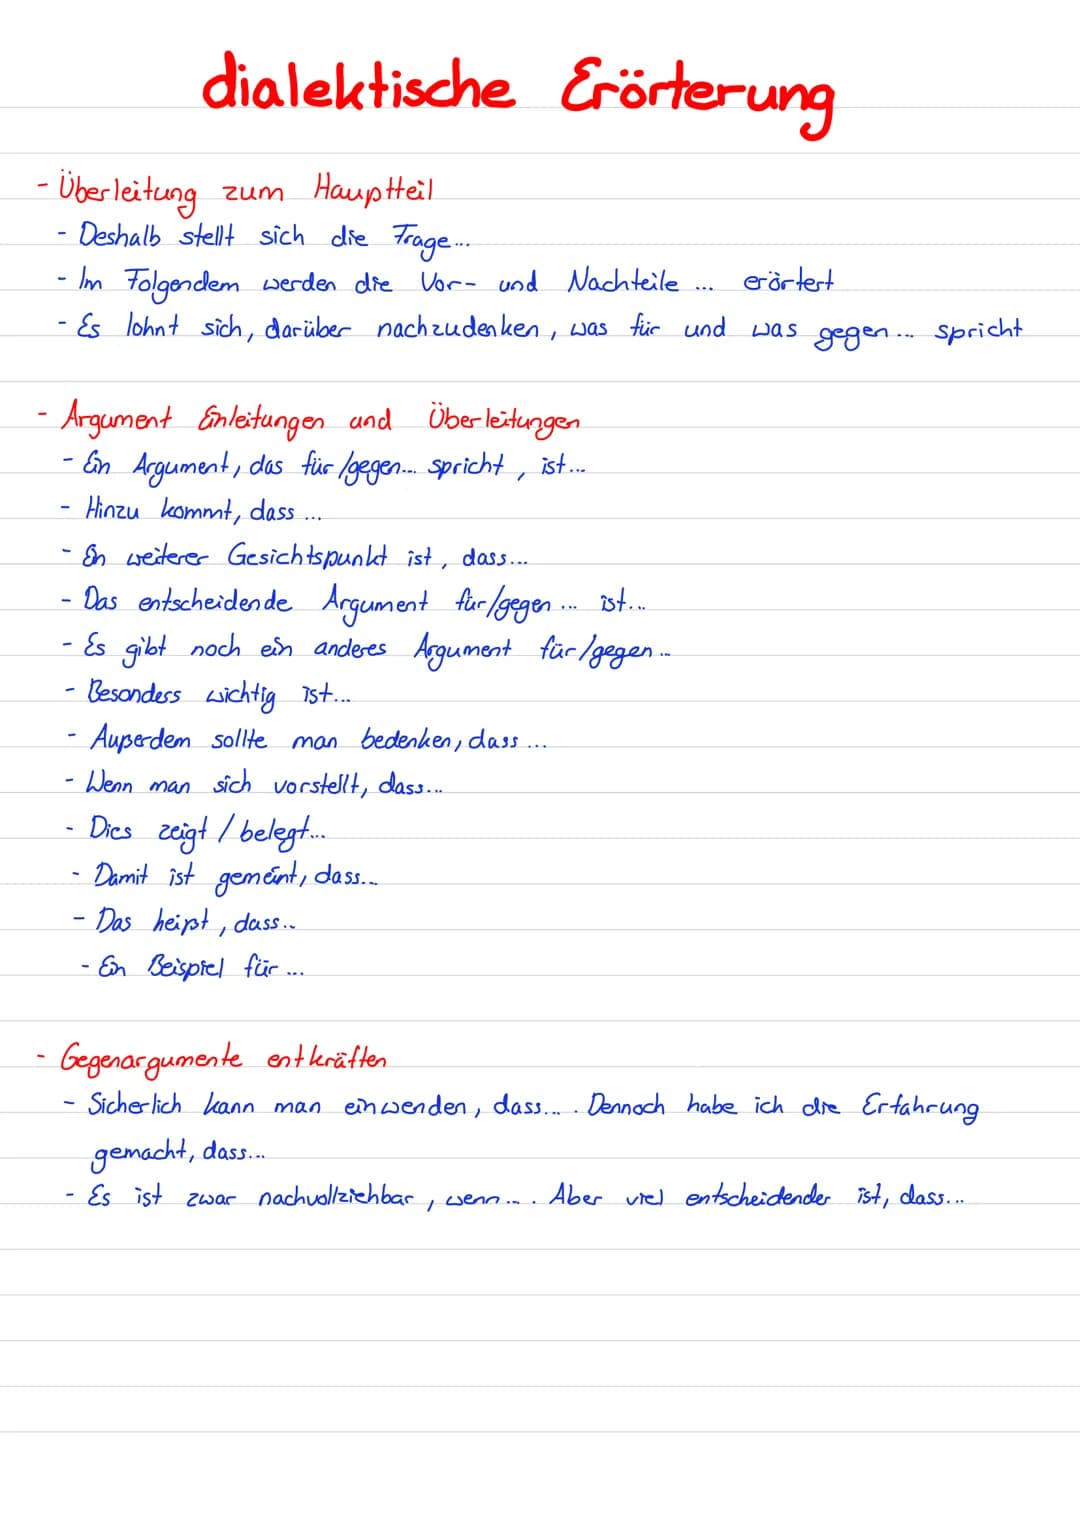 dialektische Erörterung
- Überleitung zum Hauptteil
- Deshalb stellt sich die Frage...
- Im Folgendem werden die Vor- und Nachteile ... erörtert
- Es lohnt sich, darüber nachzudenken, was für und was gegen... spricht
- Argument Einleitungen und Überleitungen
- Ein Argument, das für/gegen... spricht, ist...
- Hinzu kommt, dass ...
- Ein weiterer Gesichtspunkt ist, dass...
- Das entscheidende Argument für/gegen ... ist...
- Es gibt noch ein anderes Argument für/gegen ...
- Besonders wichtig ist...
- Außerdem sollte man bedenken, dass ...
- Wenn man sich vorstellt, dass...
- Dies zeigt / belegt...
- Damit ist gemeint, dass...
- Das heißt, dass...
- Ein Beispiel für ...
- Gegenargumente entkräften
- Sicherlich kann man einwenden, dass... . Dennoch habe ich die Erfahrung
gemacht, dass...
- Es ist zwar nachvollziehbar, wenn ... . Aber viel entscheidender ist, dass...